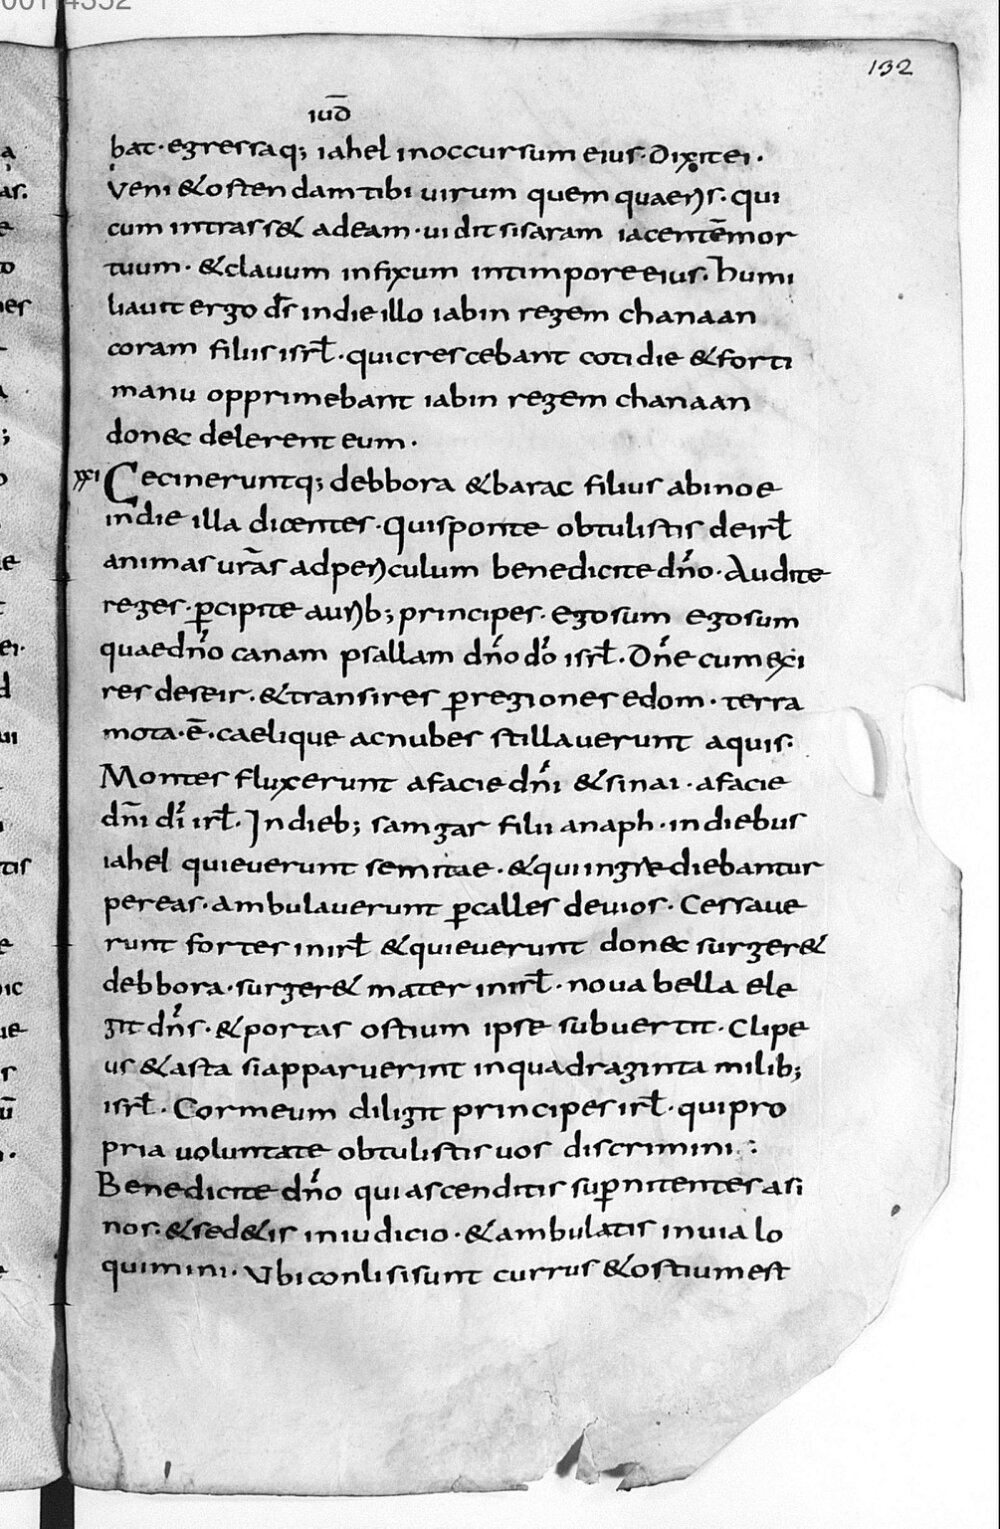 132
iud̄
bat · egressaq; iahel inoccursum eius · Dixitei ·
Veni &ostendamtibi uirum quem quaeris · qui
cum intrass& adeam · uidit sisaram iacentēmor
tuum · &clauum infixum intimpore eius · humi
liauit ergo d̄s indie illo iabin regem chanaan
coram filiis isrł · quicrescebant cotidie &forti
manu opprimebant iabin regem chanaan
donec delerent eum ·
xxi Cecineruntq; debbora &barac filius abinoe
indie illa dicentes · Quisponte obtulistis deisrł
animas ur̄as adpericulum benedicite dn̄o · Audite
reges · ꝑcipite aurib; principes · egosum egosum
quaedn̄o canam psallam dn̄o d̄o isrł · Dn̄e cum exi
res deseir · &transires ꝑregiones edom · terra
mota · ē · caelique acnubes stillauerunt aquis ·
Montes fluxerunt afacie dn̄i &sinai · afacie
dn̄i d̄i isrł · Indieb; samgar filii anaph · indiebus
iahel quieuerunt semitae · &quiingrediebantur
pereas · ambulauerunt ꝑcalles deuios · Cessaue
runt fortes inisrł &quieuerunt donec surger&
debbora · surger& mater inisrł · noua bella ele
git dn̄s · &portas ostium ipse subuertit · Clipe
us &asta siapparuerint inquadraginta milib;
isrł · Cormeum diligit principes isrł · quipro
pria uoluntate obtulistis uos discrimini :
Benedicite dn̄o quiascenditis suꝑnitentes asi
nos · &sed&is iniudicio · &ambulatis inuia lo
quimini · Vbi conlisisunt currus &ostiumest